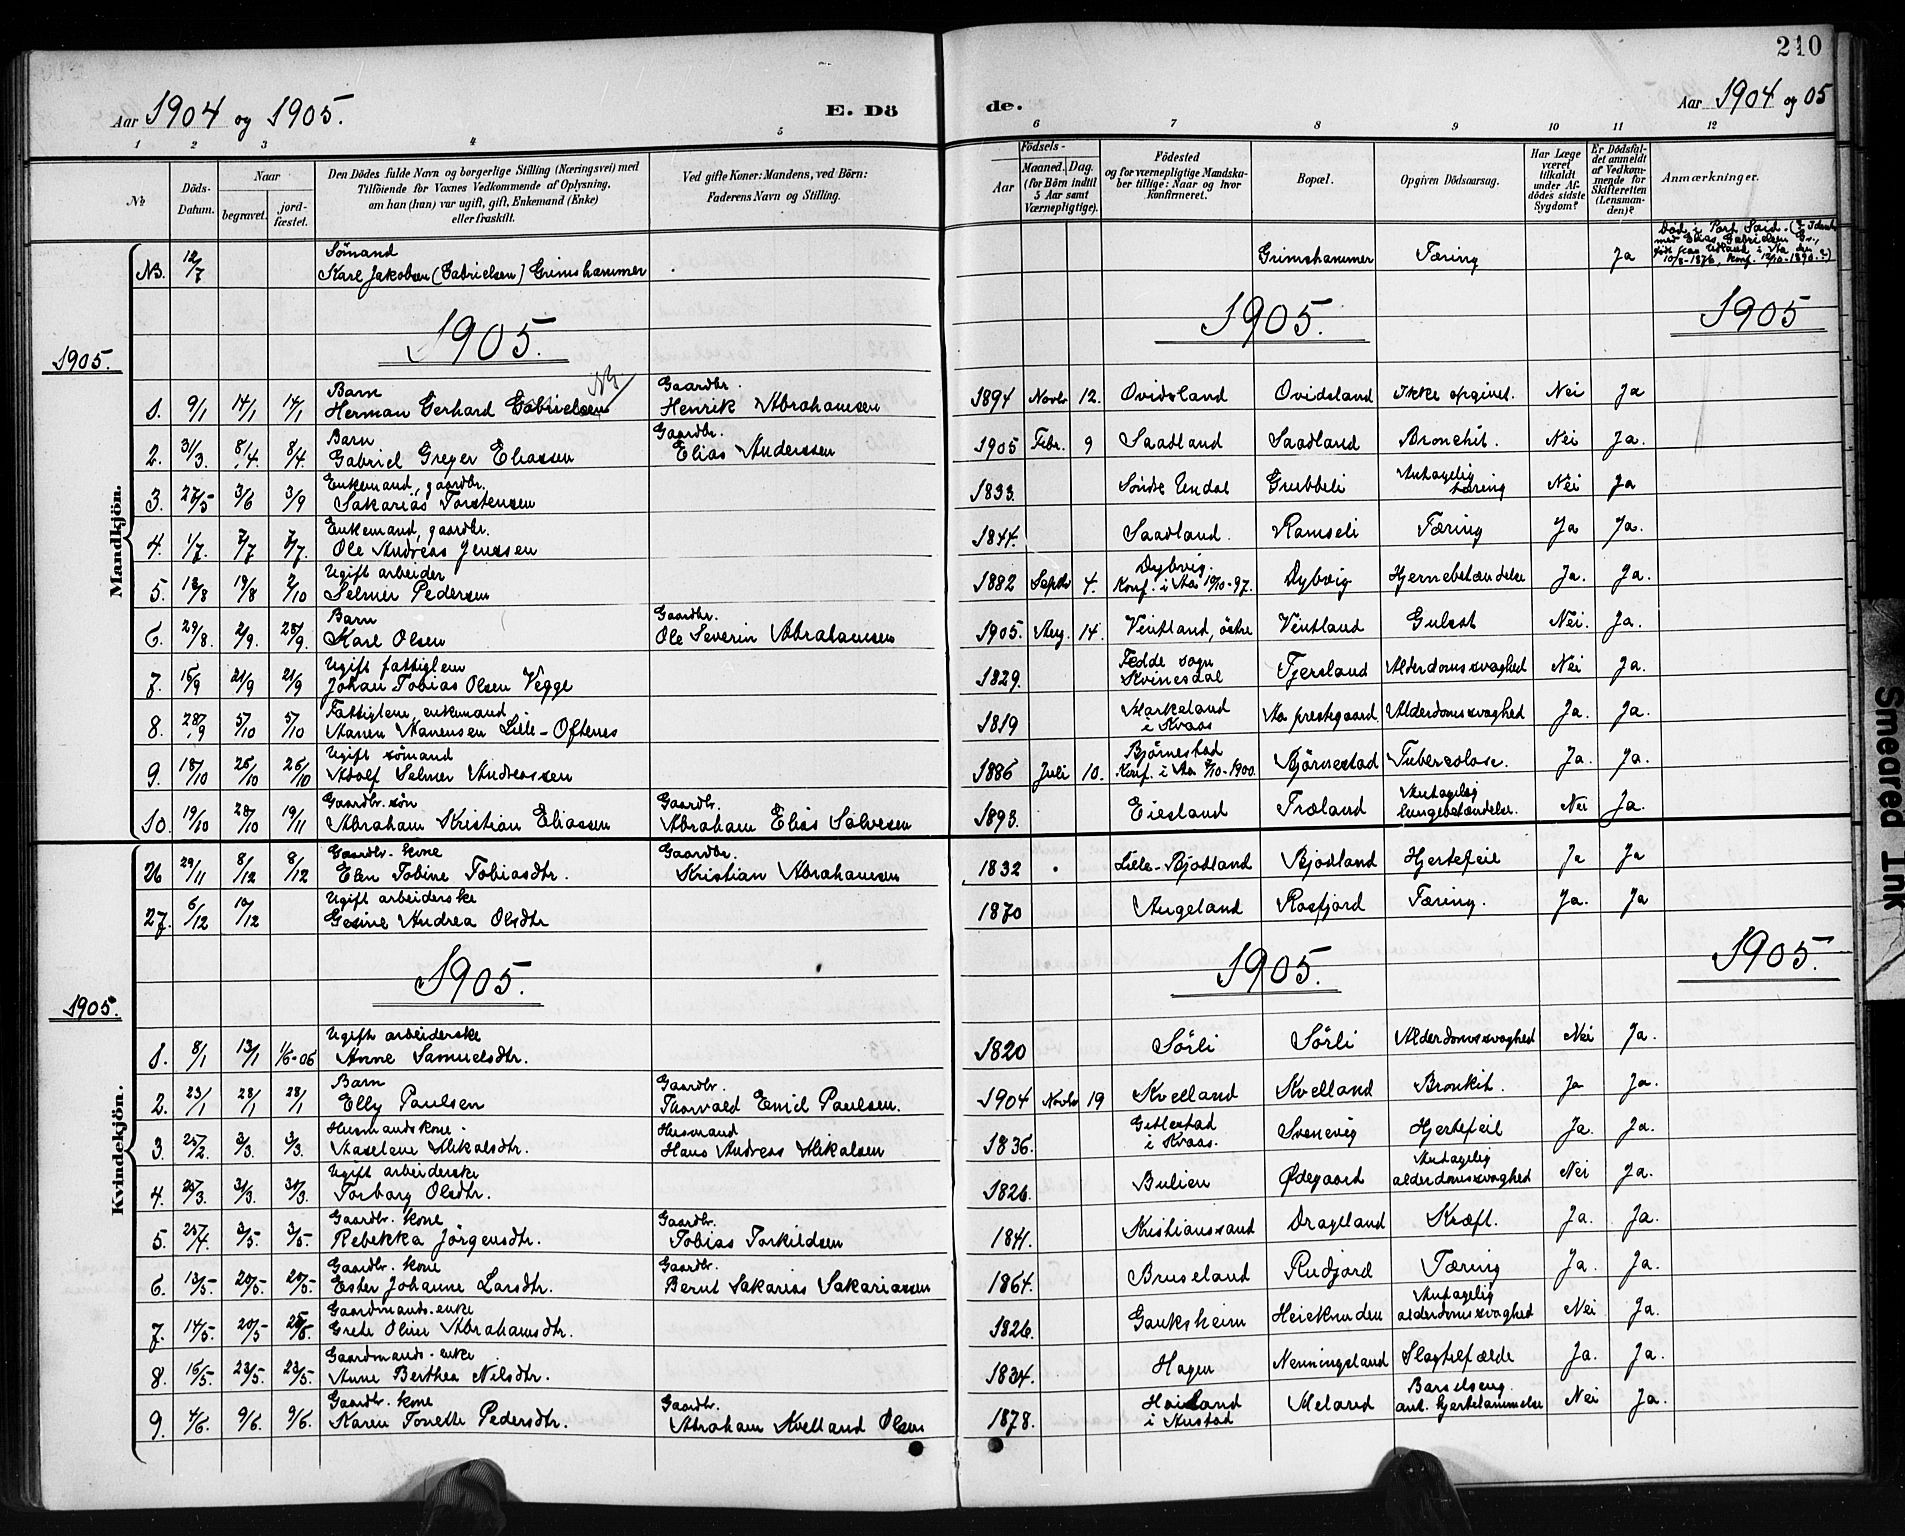 210
Aar 1904 og 1905.
E. Dö
de.
Aar 1904 og 05
1 2 3 4 5 6 7 8 9 10 11 12
No
Döds-Datum.
Naar
begravet.
jord-fæstet.
Den Dödes fulde Navn og borgerlige Stilling (Næringsvei) med
Tilföiende for Voxnes Vedkommende af Oplysning,
om han (hun) var ugift, gift, Enkemand (Enke)
eller fraskilt.
Ved gifte Koner: Mandens, ved Börn:
Faderens Navn og Stilling.
Födsels-
Aar
Maaned. Dag.
(for Börn indtil
5 Aar samt
Værnepligtige).
Födested
og for værnepligtige Mandska-
ber tillige: Naar og hvor
konfirmeret.
Bopæl.
Opgiven Dödsaarsag.
Har Læge
været
tilkaldt
under Af-
dödes sidste
Sygdom?
Er Dödsfal-
det anmeldt
af Vedkom-
mende for
Skifteretten
(Lensman-
den)?
Anmærkninger.
Mandkjön.
NB. 12/7 Sømand
Karl Jakobsen (Gabrielsen) Grimshammer Grimshammer Tæring Ja
Død i Port Said.
med Elias Gabrielsen
10/8-1876, Konf. 12/10-1890.?)
1905.
1905.
1905.
1905
1. 9/1 14/1 14/1 Barn
Herman Gerhard Gabrielsen Gaardbr.
Henrik Abrahamsen 1894 Novbr 12. Ovidsland Ovidsland Ikke opgivet. Nei Ja
2. 31/3. 8/4. 8/4. Barn
Gabriel Greger Eliassen Gaardbr.
Elias Anderssen 1905 Febr. 9 Saadland Saadland Bronchit. Nei Ja.
3. 27/5 3/6 3/9 Enkemand, gaardbr.
Sakarias Torstensen 1833. Søndre Undal Grubbeli Antagelig
tæring Nei Ja
4. 1/7. 7/7 7/7. Enkemand, gaardbr.
Ole Andreas Jenssen 1844. Saadland. Ramseli Tæring Ja Ja.
5. 13/8 19/8 2/10 Ugift arbeider
Selmer Pedersen 1882 Septbr 4. Dybvig.
Konf. i Aa 10/10-97. Dybvig Hjernebetændelse Ja. Ja.
6. 29/8. 2/9. 28/9. Barn
Karl Olsen Gaardbr.
Ole Severin Abrahamsen 1905. Aug. 14. Vintland, östre Vintland Gulsot Nei. Ja.
7. 15/9 21/9 21/9 Ugift fattiglem
Johan Tobias Olsen Vegge 1829. Fedde sogn
Kvinesdal Fjersland Alderdomssvaghed Nei Ja.
8. 28/9 5/10 5/10 Fattiglem, enkemand
Aanen Aanensen Lille-Oftenes 1819 Markeland
i Kvaas Aa prestegaard Alderdomssvaghed Ja. Ja.
9. 18/10 26/10 26/10 Ugift sømand
Adolf Selmer Andreassen 1886 Juli 10. Bjørnestad
Konf. i Aa 7/10-1900. Bjørnestad Tuberculose. Ja. Ja.
10. 19/10 28/10 19/11 Gaardbr. søn
Abraham Kristian Eliassen Gaardbr.
Abraham Elias Salvesen 1893. Eiesland Træland Antagelig
lungebetændelse. Nei Ja.
Kvindekjön.
26 29/11 8/12 8/12 Gaardbr. kone
Elen Tobine Tobiasdtr. Gaardbr.
Kristian Abrahamsen 1832 Lille-Bjodland Bjodland Hjertefeil Ja Ja
27. 6/12 19/12 Ugift arbeiderske
Gesine Andrea Olsdtr 1870 Augeland Rosfjord Tæring. Ja. Ja
1905.
1905.
1905.
1905.
1. 8/1 13/1 1/6-06 Ugift arbeiderske
Anne Samuelsdtr. 1820 Sørli Sørli Alderdomssvaghed Nei Ja.
2. 23/1 28/1 28/1 Barn
Elly Paulsen Gaardbr.
Thorvald Emil Paulsen. 1904 Novbr 19 Kvelland Kvelland Bronkit. Ja Ja.
3. 25/2. 3/3. 3/3. Husmandskone
Aaselene Mikalsdtr. Husmand
Hans Andreas Mikalsen 1836. Getlestad
i Kvaas. Svenevig Hjertefeil Ja. Ja.
4. 25/3. 31/3. 31/3. Ugift arbeiderske
Torborg Olsdtr. 1826. Bulien Ødegaard Antagelig
alderdomssvaghed Nei Ja.
5. 25/4. 3/5. 3/5. Gaardbr. kone
Rebekka Jörgensdtr. Gaardbr.
Tobias Torkildsen 1841. Kristianssand Drageland Kræft. Ja. Ja.
6. 13/5. 20/5. 20/5. Gaardbr. kone
Ester Johanne Larsdtr. Gaardbr.
Bernt Sakarias Sakariassen 1864. Bruseland Rudjord Tæring Ja. Ja.
7. 14/5. 20/5 25/6. Gaardmands-enke
Grete Oline Abrahamsdtr. 1826. Gauksheim Heieknuden Antagelig
alderdomssvaghed Nei Ja.
8. 16/5. 23/5. 23/5. Gaardmands-enke
Anne Berthea Nilsdtr. 1834. Hagen Nenningsland Slagtilfælde Ja. Ja.
9. 4/6. 9/6. 9/6. Gaardbr. kone
Karen Tonette Pedersdtr. Gaardbr.
Abraham Kvelland Olsen 1878. Hoiland
i Austad Meland Barselseng.
ant. hjertelammelse Nei Ja.
Smeared Ink